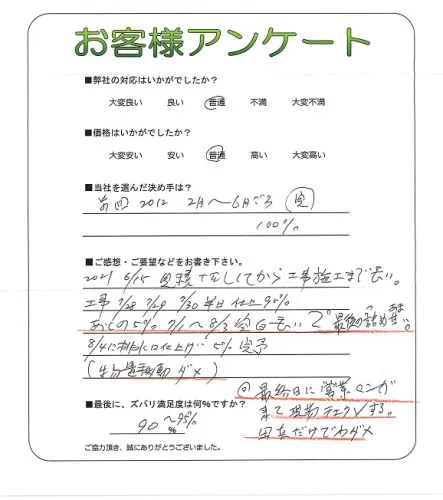 お客様アンケート
■弊社の対応はいかがでしたか?
大変良い 良い 普通 不満 大変不満
■価格はいかがでしたか?
大変安い 安い 普通 高い 大変高い
■当社を選んだ決め手は?
前回 2012 2月〜6月ごろ
100%
■ご感想・ご要望などをお書き下さい。
2021 6/15 見積 してから工事施工まで長い。
工事 7/28 7/29 7/30 半日 仕上 95%
あとの5% 〜8/3 空白 長い 最後の詰め甘い。
あま
8/4に 仕上げ 5% 完了
ダメ)
◎最終日に営業マンが
来て現場チェックする。
写真だけでわダメ
■最後に、ズバリ満足度は何%ですか?
90〜95%
%
ご協力頂き、誠にありがとうございました。